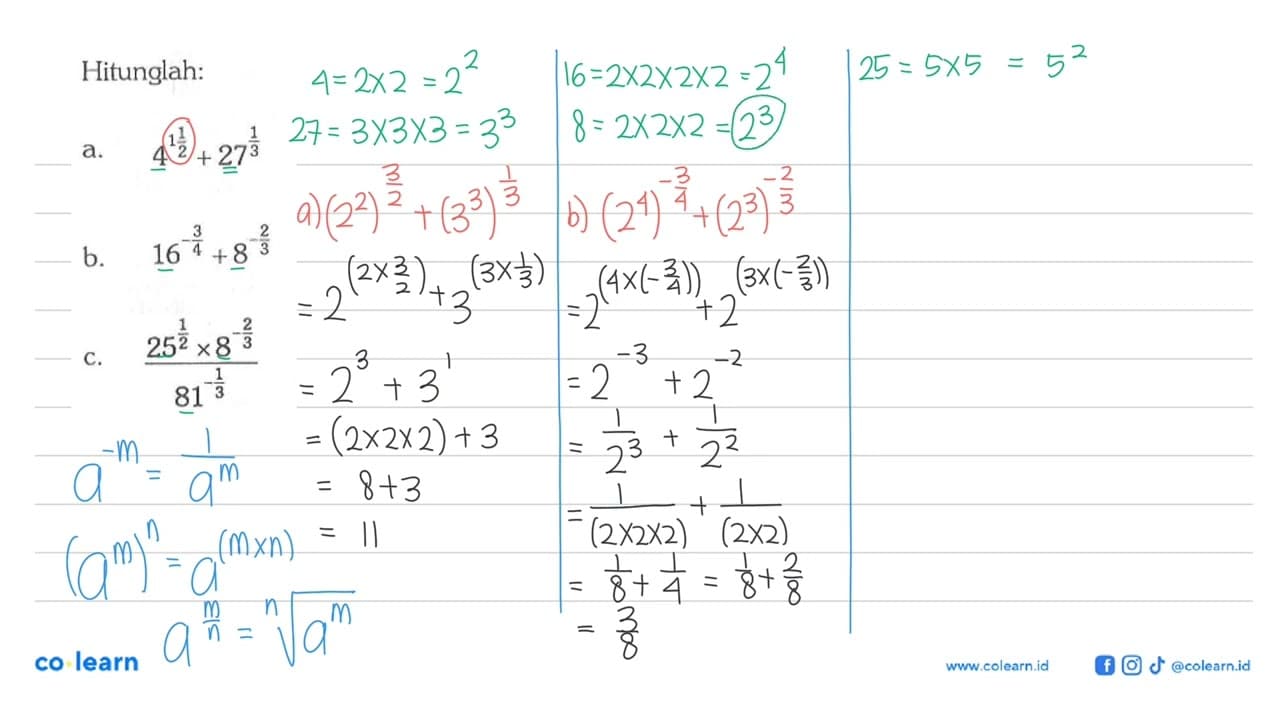 Hitunglah:
a. 4^{1\frac{1}{2}} + 27^{\frac{1}{3}}
b. 16^{-\frac{3}{4}} + 8^{-\frac{2}{3}}
c. \frac{25^{\frac{1}{2}} × 8^{-\frac{2}{3}}}{81^{-\frac{1}{3}}}
a^{-m} = \frac{1}{a^m}
(a^m)^n = a^{(m×n)}
a^{\frac{m}{n}} = \sqrt[n]{a^m}
4 = 2×2 = 2^2
27 = 3×3×3 = 3^3
a) (2^2)^{\frac{3}{2}} + (3^3)^{\frac{1}{3}}
= 2^{(2×\frac{3}{2})} + 3^{(3×\frac{1}{3})}
= 2^3 + 3^1
= (2×2×2) + 3
= 8+3
= 11
16 = 2×2×2×2 = 2^4
8 = 2×2×2 = 2^3
b) (2^4)^{-\frac{3}{4}} + (2^3)^{-\frac{2}{3}}
= 2^{(4×(-\frac{3}{4}))} + 2^{(3×(-\frac{2}{3}))}
= 2^{-3} + 2^{-2}
= \frac{1}{2^3} + \frac{1}{2^2}
= \frac{1}{(2×2×2)} + \frac{1}{(2×2)}
= \frac{1}{8} + \frac{1}{4} = \frac{1}{8} + \frac{2}{8}
= \frac{3}{8}
25 = 5×5 = 5^2
co learn
www.colearn.id
@colearn.id